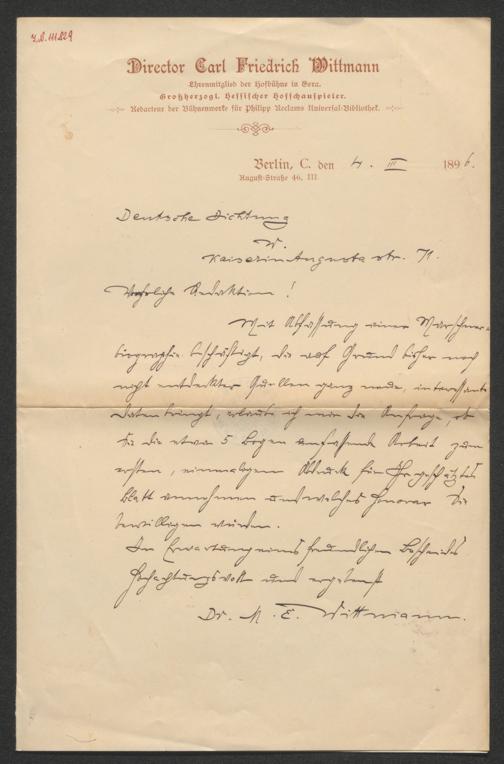 I.N. 111.829
Director Carl Friedrich Wittmann
Ehrenmitglied der Hofbühne in Gera.
Großherzogl. Hessischer Hofschauspieler.
Redacteur der Bühnenwerke für Philipp Reclams Universal-Bibliothek.
Berlin, C. den 4. III 1896.
August-Straße 46, III
Deutsche Dichtung
W.
Kaiserin Augusta str. 71.
Verehrliche Redaktion!
Mit Abfassung einer Marschner-
biographie beschäftigt, die auf Grund bisher noch
nicht entdeckter Quellen ganz neue, interessante
Daten bringt, erlaube ich mir die Anfrage, ob
Sie die etwa 5 Bogen umfassende Arbeit zum
ersten, einmaligen Abdruck für Ihr geschätztes
Blatt annehmen und welches Honorar Sie
bewilligen würden.
In Erwartung eines freundlichen Bescheides
Hochachtungsvoll und ergebenst
Dr. M. E. Wittmann.